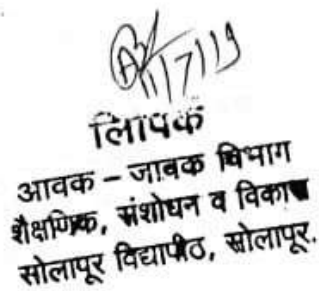 11/7/19
लिपिक
आवक – जावक विभाग
शैक्षणिक, संशोधन व विकास
सोलापूर विद्यापीठ, सोलापूर.